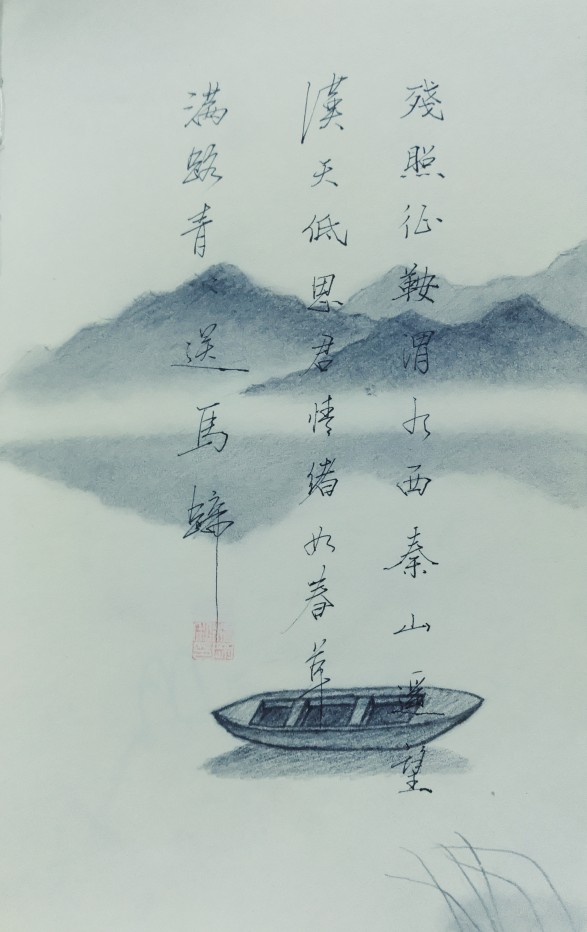 殘照征鞍渭水西秦山遥望
漢天低思君情绪如春草
满路青送馬蹄